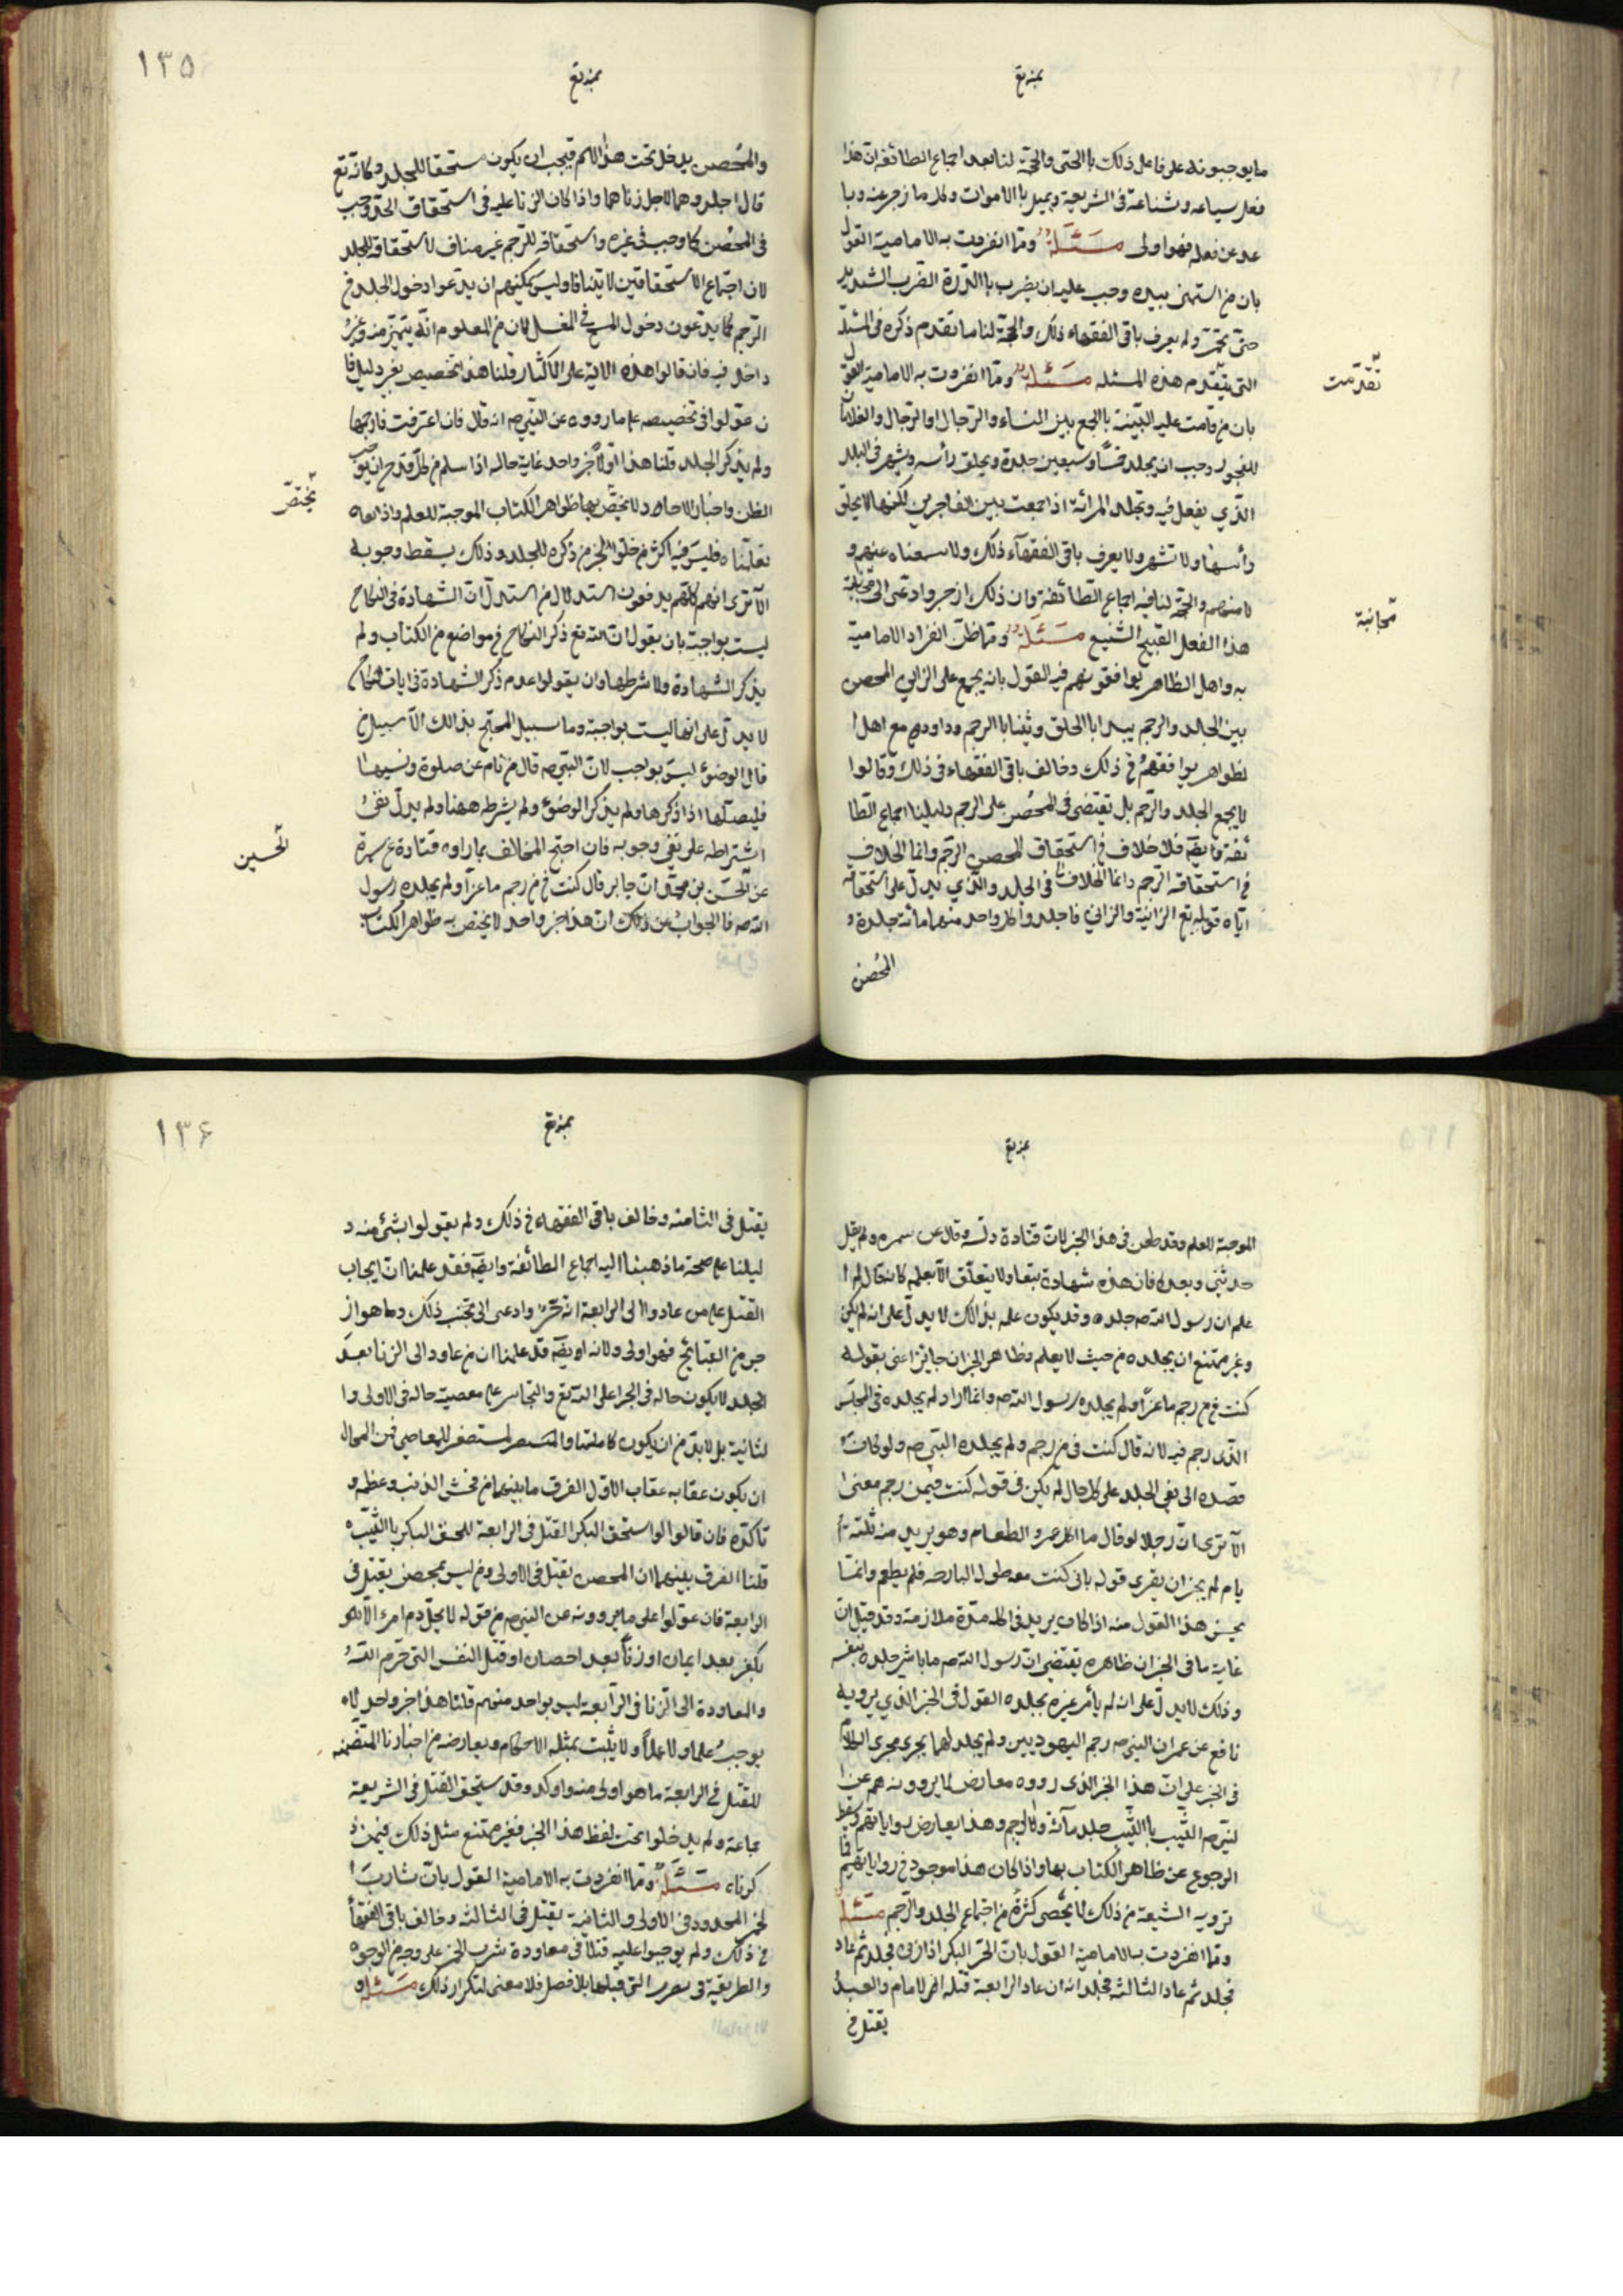 مايوجبونه على فاعل ذلك بالحق والحجة لنا بعد اجماع الطائفة ان هذا
عد عن فعله فهو اولى مسئلة ومما انفردت به الامامية القول
بان من استمنى بيده وجب عليه ان يضرب بالدرة الضرب الشديد
حتى تحمر ولم يعرف باقى الفقهاء ذلك والحجة لنا ما تقدم ذكره فى المسئلة
التى يتقدم هذه المسئله مسئلة ومما انفردت به الامامية القول
تقدّمت
بان من قامت عليه البينة بالجمع بين النساء والرجال او الرجال والغلمان
للفجور وجب ان يجلد خمسًا وسبعين جلدة ويحلق رأسه ويشهر فى البلد
الذي يفعل فيه وتجلد المرأة اذا جمعت بين الفاجرين لكنها لا يحلق
رأسها ولا تشهر ولا يعرف باقى الفقهآء ذلك ولا سمعناه عنهم و
لا منهم والحجة لنا فيه اجماع الطائفة وان ذلك ازجر وادعى الى مجانبة
مجانبة
هذا الفعل القبيح الشنيع مسئلة ومما ظن انفراد الامامية
به واهل الظاهر يوافقونهم فيه القول بانه يجمع على الزاني المحصن
بين الجلد والرجم يبدا بالجلد ويثنا بالرجم وداود مع اهل ا
لظواهر يوافقهم فى ذلك وخالف باقى الفقهاء فى ذلك وقالوا
لا يجمع الجلد والرجم بل تقتضى فى المحصن على الرجم دليلنا اجماع الطا
ئفة وايضا فلا خلاف فى استحقاق المحصن الرجم وانما الخلاف
فى استحقاقه الرجم وانما الخلاف فى الجلد والذي يدل على استحقاقه
اياه قوله تع الزانية والزاني فاجلدوا كل واحد منهما مائة جلدة و
المحصن
١٣٥
والمحصن يدخل تحت هذا الاسم فيجب ان يكون مستحقا للجلد وكانه تع
قال اجلدوهما لاجل زناهما واذا كان الزنا عليه فى استحقاق الحد وجب
فى المحصن كما وجب فى غيره واستحقاقه للرجم غير مناف لاستحقاقه للجلد
لان اجتماع الاستحقاقين لا يتنافا وليس يمكنهم ان يدعوا دخول الجلد فى
الرجم كما يدعون دخول المسح فى الغسل لان من المعلوم انه يتميز منه وغير
داخل فيه فان قالوا هذه الآية على الاكثار قلنا هذا تخصيص بغير دليل فا
ن عولوا فى تخصيصه على ما رووه عن النبي ص انه قال فان اعترفت فارجمها
ولم يذكر الجلد قلنا هذا اولا خبر واحد غاية حاله اذا سلم من كل قدح ان يوجب
الظن واخبار الاحاد لا يخص بها ظواهر الكتاب الموجبة للعلم واذا
يختصّ
فليس فيه اكثر من خلو الخبر من ذكره للجلد وذلك يسقط وجوبه
الآ ترى انهم كلهم يدفعون استدلال من استدل ان الشهادة فى النكاح
ليست بواجبة بان يقول ان الله تع ذكر النكاح فى مواضع من الكتاب ولم
يذكر الشهادة ولا شرطها وان يقولوا عدم ذكر الشهادة فى ايات النكاح
لا يدل على انها ليست بواجبة وما سبيل المحتج بذالك الا سبيل من
قال الوضوء ليس بواجب لان النبي ص قال من نام عن صلوة ونسيها ا
فليصلها اذا ذكرها ولم يذكر الوضوء ولم يشرطه ههنا ولم يدل نفى
اشتراطه على نفى وجوبه فان احتج المخالف بما رواه قتادة عن سمرة
الحسين
عن الحسن بن محمد ان جابر قال كنت فى من رجم ماعزا ولم يجلده رسول
الله ص فالجواب عن ذلك ان هذا خبر واحد لا يختص به ظواهر الكتاب
الموجبة للعلم وقد طعن فى هذا الخبر لان قتادة دلسه وقال عن سمره ولم يقل
حدثنى وبعده فان هذه شهادة بنفى ولا يتعلق الا بعلمه كانه قال لم ا
علم ان رسول الله ص جلده وقد يكون علمه بذالك لا يدل على انه لم يكن
وغير ممتنع ان يجلده من حيث لا يعلم وظاهر الخبر ان جابرا عنى بقوله
كنت فى من رجم ماعزا ولم يجلده رسول الله ص وانما اراد لم يجلده فى المجلس
الذى رجم فيه لانه قال كنت فى من رجم ولم يجلده النبي ص ولو كان
قصده الى نفى الجلد على كل حال لم يكن فى قوله كنت فيمن رجم معنى ا
الا ترى ان رجلا لو قال ما اكل عمرو الطعام وهو يريد منه ثلثة أ
يام لم يجز ان يقرى قوله بانى كنت معه طول البارحه فلم يطعم وانما
يحسن هذا القول منه اذا كان يريد فى اكله مدة ملازمته وقد قيل ان
غاية ما فى الخبر ان ظاهره يقتضى ان رسول الله ص ما باشر جلده بنفسه
وذلك لا يدل على انه لم يأمر غيره بجلده القول فى الخبر الذي يرويه
نافع عن عمر ان النبي ص رجم اليهوديين ولم يجلدهما يجرى مجرى الكلام
فى الخبر على ان هذا الخبر الذى رووه معارض لما يروونه هم عن ا
لنبي ص الثيب بالثيب جلد مآئة والرجم وهذا يعارض رواياتهم
الرجوع عن ظاهر الكتاب بها واذا كان هذا موجود فى رواياتهم
ترويه الشيعة من ذلك لا يحصى كثرة من اجتماع الجلد والرجم مسئلة
ومما انفردت به الامامية القول بان الحر البكر اذا زنى فجلد ثم عاد
فجلد ثم عاد الثالثة فجلد انه ان عاد الرابعة قتله الامام والعبد
يقتل فى
١٣۶
يقتل فى الثامنه وخالف باقى الفقهاء فى ذلك ولم يقولوا بشئ منه د
ليلنا على صحة ما ذهبنا اليه اجماع الطائفة وايضا فقد علمنا ان ايجاب
القتل على من عاد والى الرابعة ازجر وادعى الى تجنب ذلك وما هو از
جر من القبائح فهو اولى ولانه ايضا قد علمنا ان من عاود الى الزنا بعد
الجلد لا يكون حاله فى الجراة على الله تع والتجاسر على معصيته حاله فى الاولى وا
ان يكون عقابه عقاب الاول الفرق ما بينهما من فحش الذنب وعظمه و
تاكده فان قالوا لو استحق البكر القتل فى الرابعة للحق البكر بالثيب
قلنا الفرق بينهما ان المحصن يقتل فى الاولى ومن ليس بمحصن يقتل فى
الرابعة فان عولوا على ما يروونه عن النبي ص من قوله لا يحل دم امرء
بكفر بعد ايمان او زنا بعد احصان او قتل النفس التى حرم الله
والمعاودة الى الزنا فى الرابعة ليس بواحد منهم قلنا هذا خبر واحد لا
يوجب علما ولا عملا ولا يثبت بمثله الاحكام ويعارضه من اخبارنا المتضمنه
للقتل فى الرابعة ما هو اولى منه واوكد وقد يستحق القتل فى الشريعة
جماعة ولم يدخلوا تحت لفظ هذا الخبر فغير ممتنع مثل ذلك فيمن ذ
كرناه مسئلة ومما انفردت به الامامية القول بان شارب ا
لخمر المحدود فى الاولى والثانية يقتل فى الثالثه وخالف باقى الفقهآ
فى ذلك ولم يوجبوا عليه قتلا فى معاودة شرب الخمر على وجه من الوجوه
والطريقة فى التى قبلها بلا فصل فلا معنى لتكرار ذلك مسئلة و